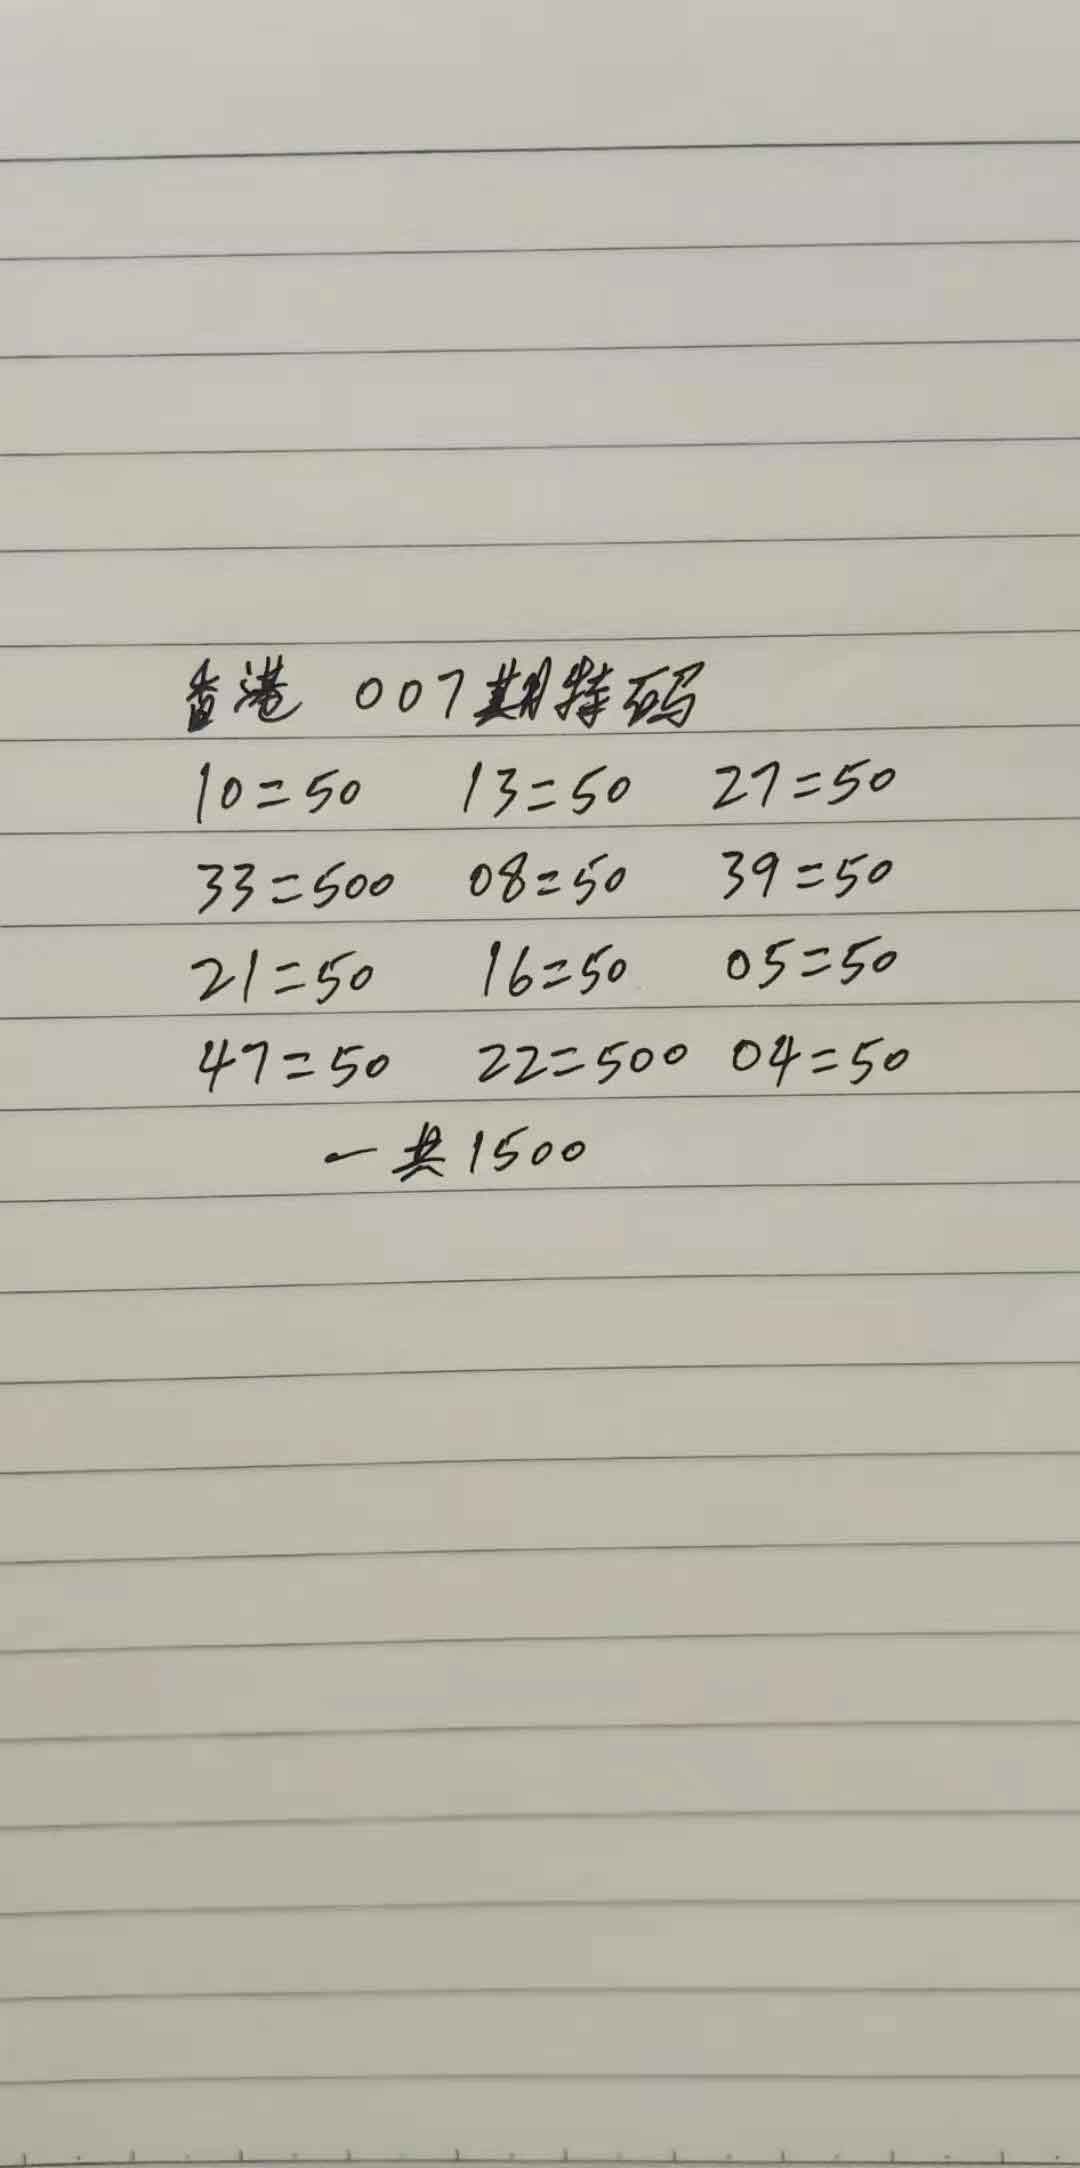 香港 007期特码
10=50 13=50 27=50
33=500 08=50 39=50
21=50 16=50 05=50
47=50 22=500 04=50
一共1500